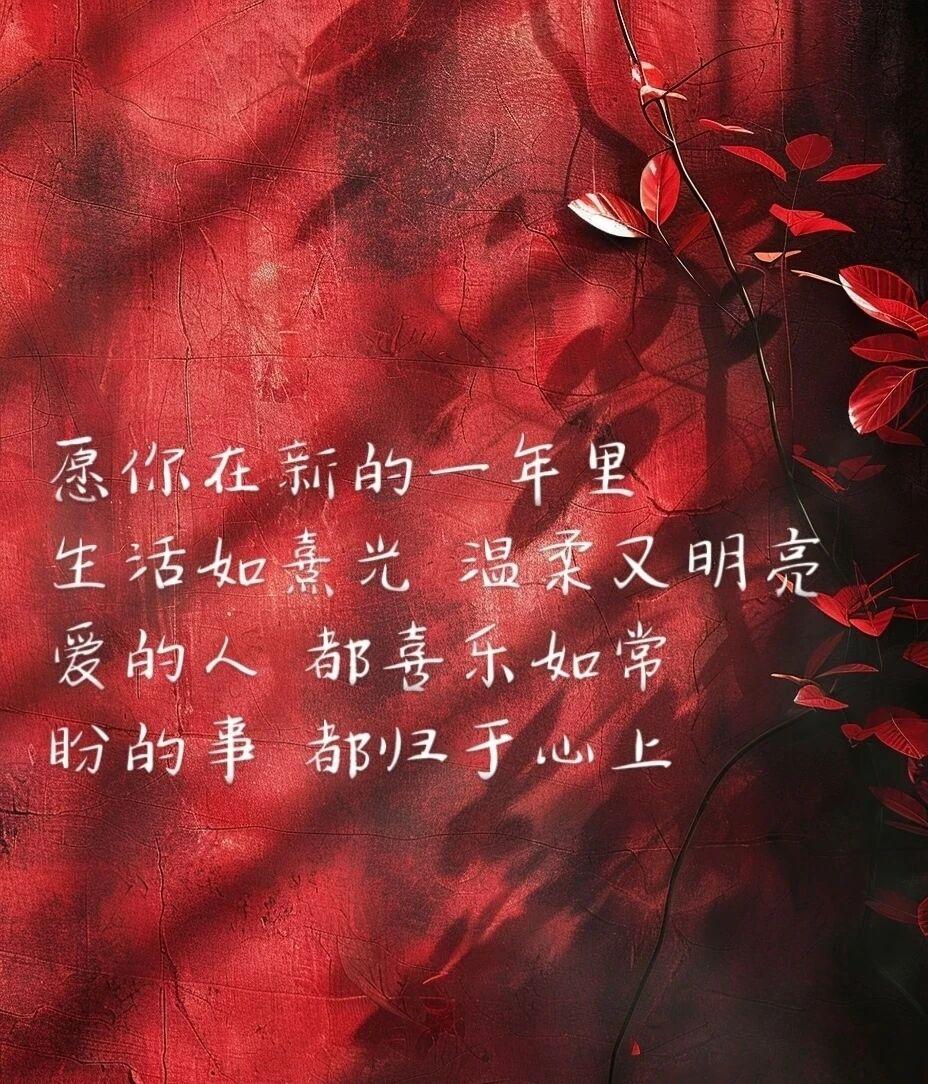 愿你在新的一年里
生活如熹光 温柔又明亮
爱的人 都喜乐如常
盼的事 都归于心上